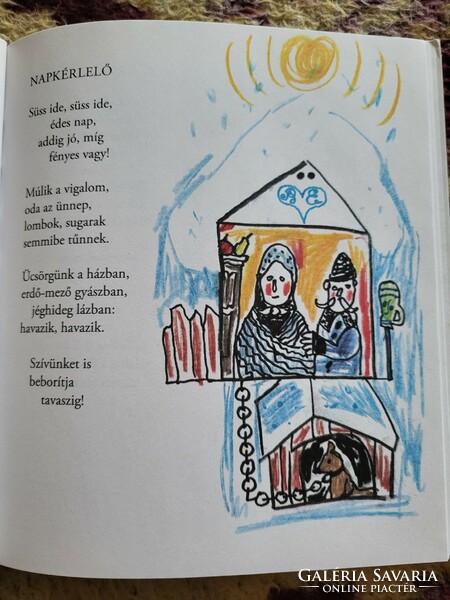 NAPKÉRLELŐ
Süss ide, süss ide,
édes nap,
addig jó, míg
fényes vagy!
Múlik a vigalom,
oda az ünnep,
lombok, sugarak
semmibe tűnnek.
Ücsörgünk a házban,
erdő-mező gyászban,
jéghideg lázban:
havazik, havazik.
Szívünket is
beborítja
tavaszig!
GALÉRIA SAVARIA
ONLINE PIACTÉR